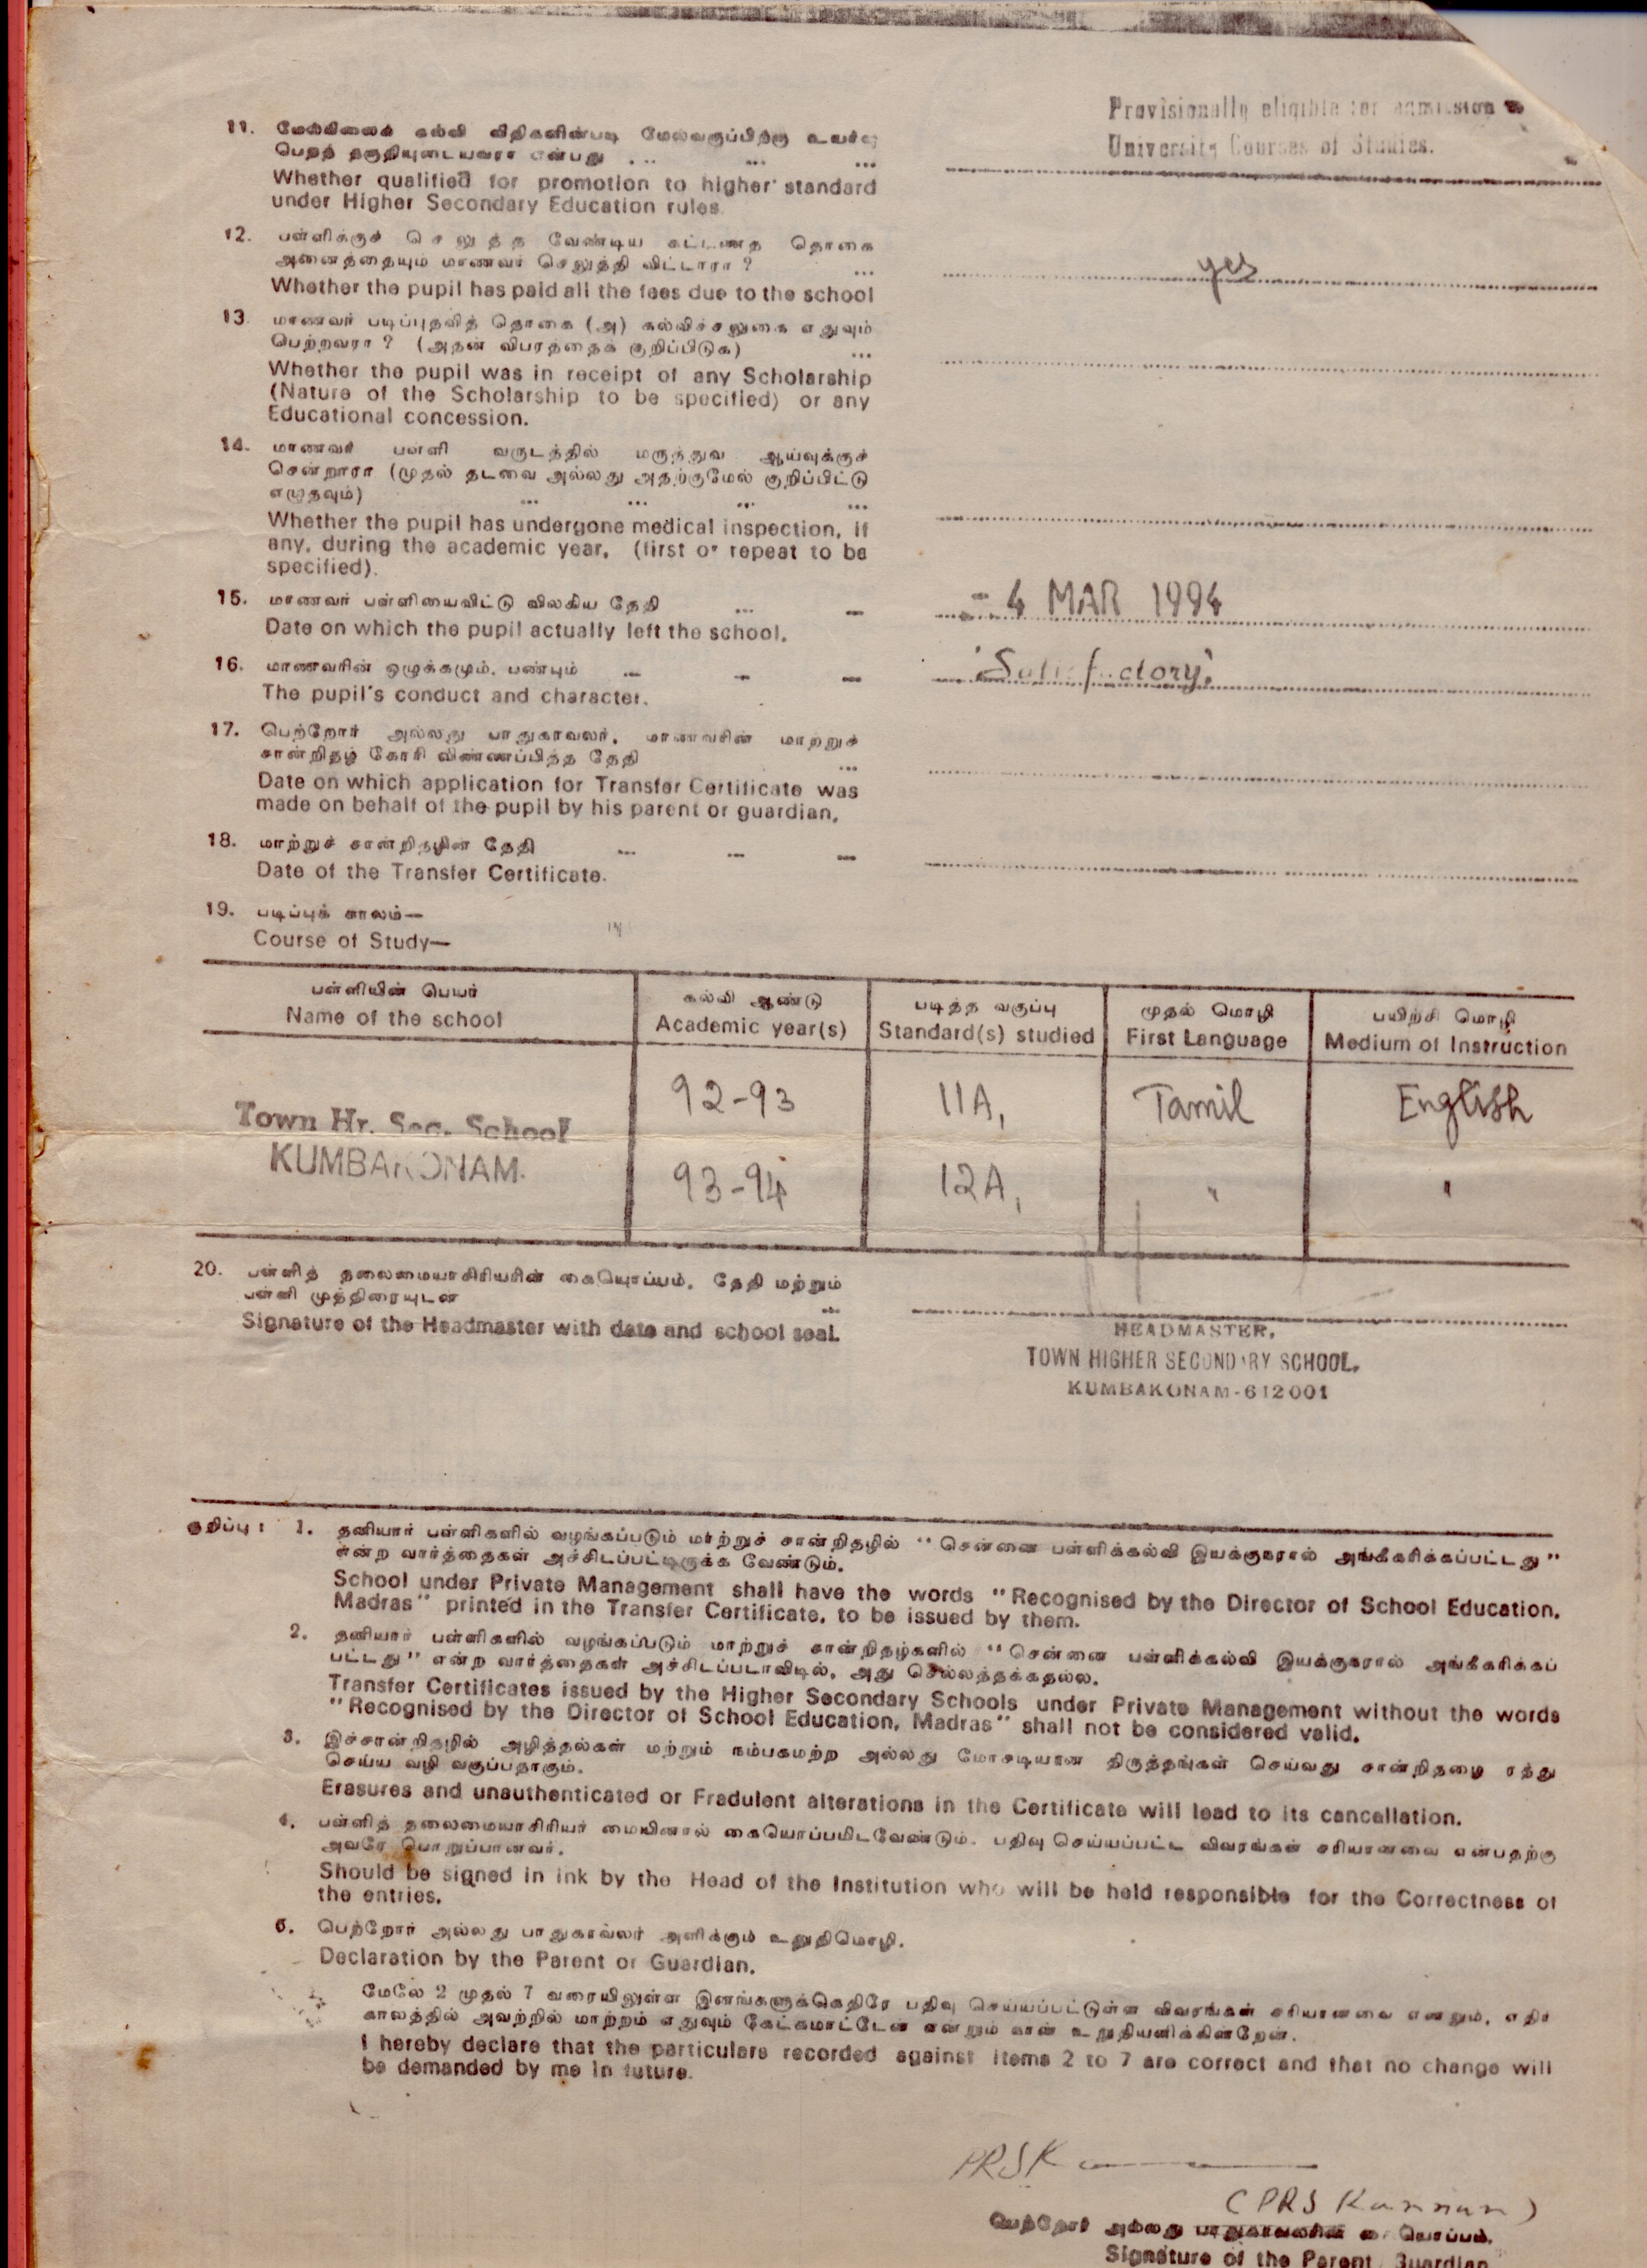 Provisionally eligible for admission to
University Courses of Studies.
11. மேல்நிலைக் கல்வி விதிகளின்படி மேல்வகுப்பிற்கு உயர்வு
பெறத் தகுதியுடையவரா என்பது ... ... ...
Whether qualified for promotion to higher standard
under Higher Secondary Education rules.
12. பள்ளிக்குச் செலுத்த வேண்டிய கட்டணத் தொகை
அனைத்தையும் மாணவர் செலுத்தி விட்டாரா ? ...
yes
Whether the pupil has paid all the fees due to the school
13. மாணவர் படிப்புதவித் தொகை (அ) கல்விச்சலுகை எதுவும்
பெற்றவரா ? (அதன் விபரத்தைக் குறிப்பிடுக) ...
Whether the pupil was in receipt of any Scholarship
(Nature of the Scholarship to be specified) or any
Educational concession.
14. மாணவர் பள்ளி வருடத்தில் மருத்துவ ஆய்வுக்குச்
சென்றாரா (முதல் தடவை அல்லது அதற்குமேல் குறிப்பிட்டு
எழுதவும்) ... ... ... ...
Whether the pupil has undergone medical inspection, if
any, during the academic year, (first or repeat to be
specified).
15. மாணவர் பள்ளியைவிட்டு விலகிய தேதி ... -
- 4 MAR 1994
Date on which the pupil actually left the school.
16. மாணவரின் ஒழுக்கமும், பண்பும் - - -
'Satisfactory'
The pupil's conduct and character.
17. பெற்றோர் அல்லது பாதுகாவலர், மாணவரின் மாற்றுச்
சான்றிதழ் கோரி விண்ணப்பித்த தேதி ...
Date on which application for Transfer Certificate was
made on behalf of the pupil by his parent or guardian.
18. மாற்றுச் சான்றிதழின் தேதி - - -
Date of the Transfer Certificate.
19. படிப்புக் காலம்—
Course of Study—
பள்ளியின் பெயர் கல்வி ஆண்டு படித்த வகுப்பு முதல் மொழி பயிற்சி மொழி
Name of the school Academic year(s) Standard(s) studied First Language Medium of Instruction
Town Hr. Sec. School 92-93 11A, Tamil English
KUMBAKONAM. 93-94 12A, " "
20. பள்ளித் தலைமையாசிரியரின் கையொப்பம், தேதி மற்றும்
பள்ளி முத்திரையுடன் ...
Signature of the Headmaster with date and school seal.
HEADMASTER,
TOWN HIGHER SECONDARY SCHOOL,
KUMBAKONAM-612001
குறிப்பு : 1. தனியார் பள்ளிகளில் வழங்கப்படும் மாற்றுச் சான்றிதழில் "சென்னை பள்ளிக்கல்வி இயக்குநரால் அங்கீகரிக்கப்பட்டது"
என்ற வார்த்தைகள் அச்சிடப்பட்டிருக்க வேண்டும்.
School under Private Management shall have the words "Recognised by the Director of School Education,
Madras" printed in the Transfer Certificate, to be issued by them.
2. தனியார் பள்ளிகளில் வழங்கப்படும் மாற்றுச் சான்றிதழ்களில் "சென்னை பள்ளிக்கல்வி இயக்குநரால் அங்கீகரிக்கப்
பட்டது" என்ற வார்த்தைகள் அச்சிடப்படாவிடில், அது செல்லத்தக்கதல்ல.
Transfer Certificates issued by the Higher Secondary Schools under Private Management without the words
"Recognised by the Director of School Education, Madras" shall not be considered valid.
3. இச்சான்றிதழில் அழித்தல்கள் மற்றும் நம்பகமற்ற அல்லது மோசடியான திருத்தங்கள் செய்வது சான்றிதழை ரத்து
செய்ய வழி வகுப்பதாகும்.
Erasures and unauthenticated or Fradulent alterations in the Certificate will lead to its cancellation.
4. பள்ளித் தலைமையாசிரியர் மையினால் கையொப்பமிடவேண்டும். பதிவு செய்யப்பட்ட விவரங்கள் சரியானவை என்பதற்கு
அவரே பொறுப்பானவர்.
Should be signed in ink by the Head of the Institution who will be held responsible for the Correctness of
the entries.
5. பெற்றோர் அல்லது பாதுகாவலர் அளிக்கும் உறுதிமொழி.
Declaration by the Parent or Guardian.
மேலே 2 முதல் 7 வரையிலுள்ள இனங்களுக்கெதிரே பதிவு செய்யப்பட்டுள்ள விவரங்கள் சரியானவை எனலும், எதிர்
காலத்தில் அவற்றில் மாற்றம் எதுவும் கேட்கமாட்டேன் என்றும் நான் உறுதியளிக்கின்றேன்.
I hereby declare that the particulars recorded against items 2 to 7 are correct and that no change will
be demanded by me in future.
PRSK
(PRS Kannan)
பெற்றோர் அல்லது பாதுகாவலரின் கையொப்பம்.
Signature of the Parent Guardian